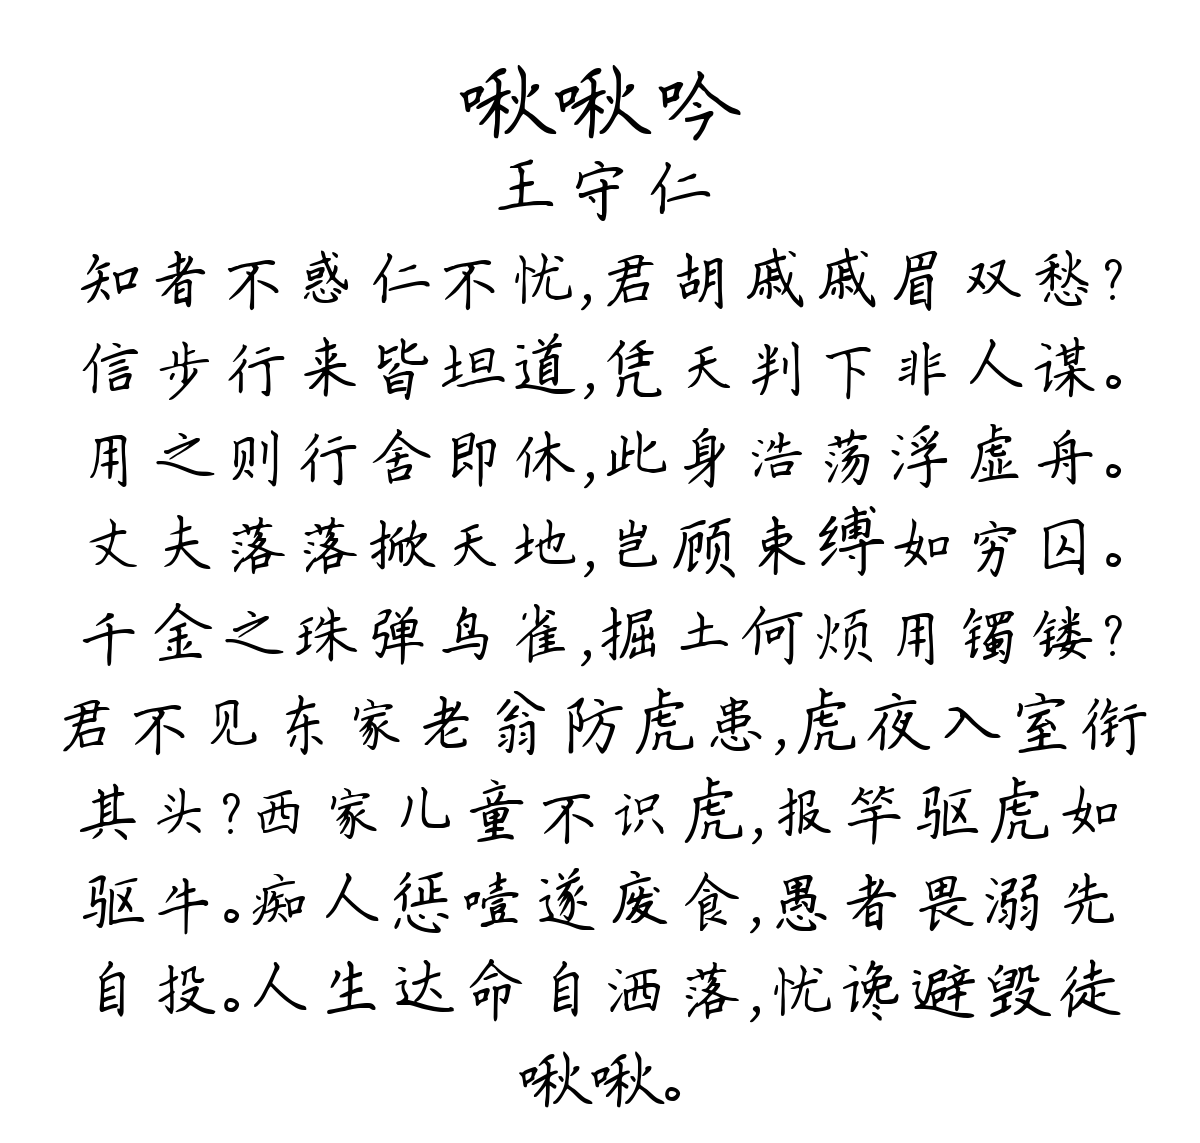 啾啾吟
王守仁
知者不惑仁不忧,君胡戚戚眉双愁?
信步行来皆坦道,凭天判下非人谋。
用之则行舍即休,此身浩荡浮虚舟。
丈夫落落掀天地,岂顾束缚如穷囚。
千金之珠弹鸟雀,掘土何烦用镯镂?
君不见东家老翁防虎患,虎夜入室衔
其头?西家儿童不识虎,报竿驱虎如
驱牛。痴人惩噎遂废食,愚者畏溺先
自投。人生达命自洒落,忧谗避毁徒
啾啾。